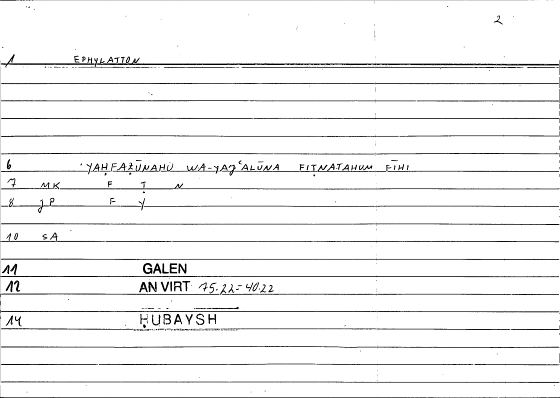 2
1 EPHYLATTON
6 'YAḤFAẒŪNAHŪ WA-YAǦʿALŪNA FIṬNATAHUM FĪHI
7 MK F Ṭ N
8 JP F Y
10 SA
11 GALEN
12 AN VIRT 75.22=40.22
14 ḤUBAYSH